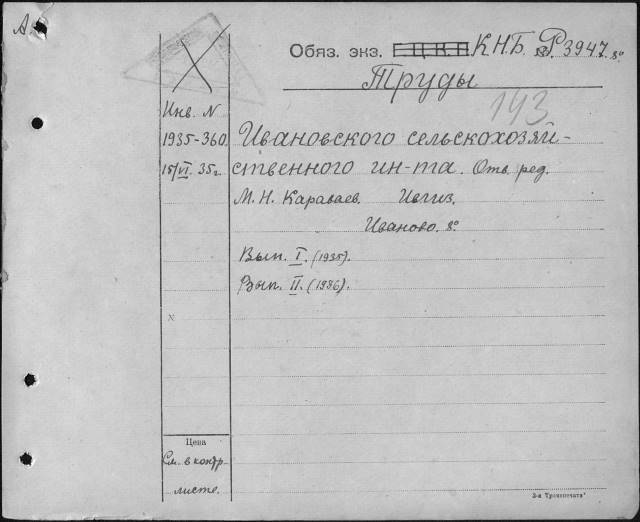 А.
Обяз. экз. Г.Ц.К.П К.Н.Б. Р 3947. 8°
Труды
143
Инв. N
1935-360. Ивановского сельскохозяй-
15/VI. 35 г. ственного ин-та. Отв. ред.
М. Н. Караваев. Ивгиз.
Иваново. 8°
Вып. I. (1935).
Вып. II. (1936).
N
Цена
См. в контр-
листе.
3-я Транспечати